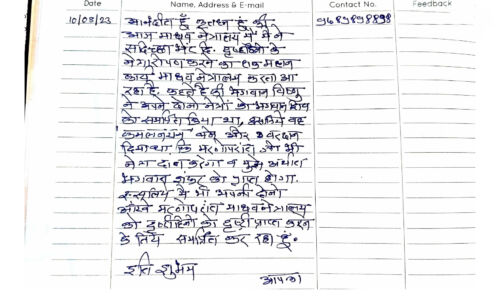 Date Name, Address & E-mail Contact No. Feedback
10/08/23 आनंदीत हूँ कृतज्ञ हूँ की 9689898898
आज माधव नेत्रालय में मैंने
सदिच्छा भेट दि. दृष्टीहिनो के
नेत्रारोपण करने का एक महान
कार्य माधव नेत्रालय करता आ
रहा है. कहते है की भगवान विष्णु
ने अपने दोनो नेत्रों को भगवान शिव
को समर्पित किया था, इसलिये वह
कमलनयन बने और वरदान
दिया था. कि मरणोपरांत जो भी
नेत्र दान करेगा व मुझे अर्थात
भगवान शंकर को प्राप्त होगा.
इसलिये मैं भी अपनी दोनो
आँखे मरणोपरांत माधव नेत्रालय
को दृष्टीहिनो को दृष्टी प्राप्त करने
के लिये समर्पित कर रहा हूं.
इति शुभम
आपला